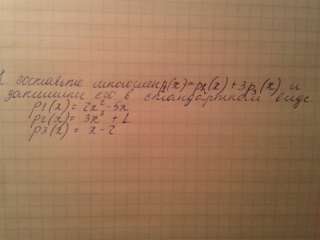 составьте многочлен p(x)=p2(x)+3p3(x) и
запишите его в стандартном виде
p1(x) = 2x²-5x
p2(x) = 3x² + 1
p3(x) = x-2